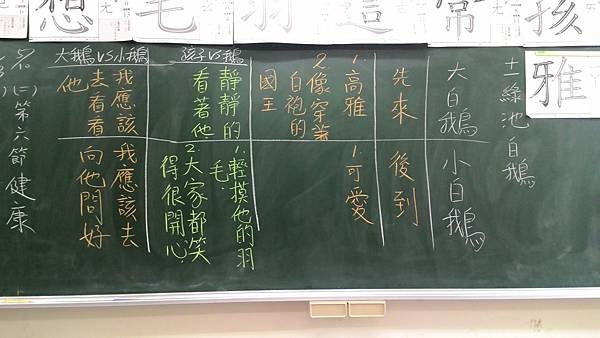 想 毛 羽 這 常 孩
雅
十一綠池白鵝
大白鵝
小白鵝
先來
後到
1.高雅
2.像穿著
白袍的
國王
1.可愛
孩子VS鵝
靜靜的
看著他
1.輕摸他的羽
毛.
2.大家都笑
得很開心.
大鵝VS小鵝
我應該
去看看
他
我應該去
向他問好
(二)第六節健康